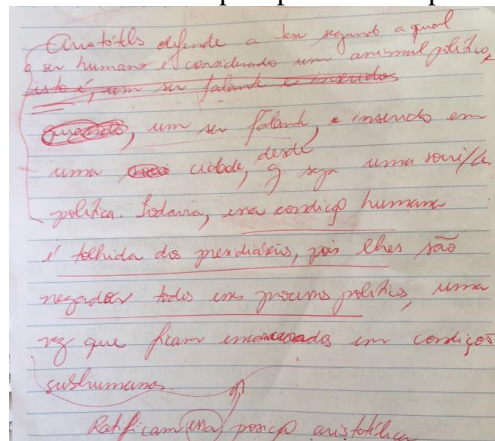 Aristóteles defende a tese segundo a qual
o ser humano é considerado um animal político,
isto é, um ser falante e inserido
, um ser falante, e inserido em
uma cidade, desde q seja uma
política. Todavia, essa condição humana
é tolhida dos presidiários, pois lhes são
negados todos esses processos políticos, uma
vez que ficam encarcerados em condições
subhumanas.
Ratificam essa posição aristotélica